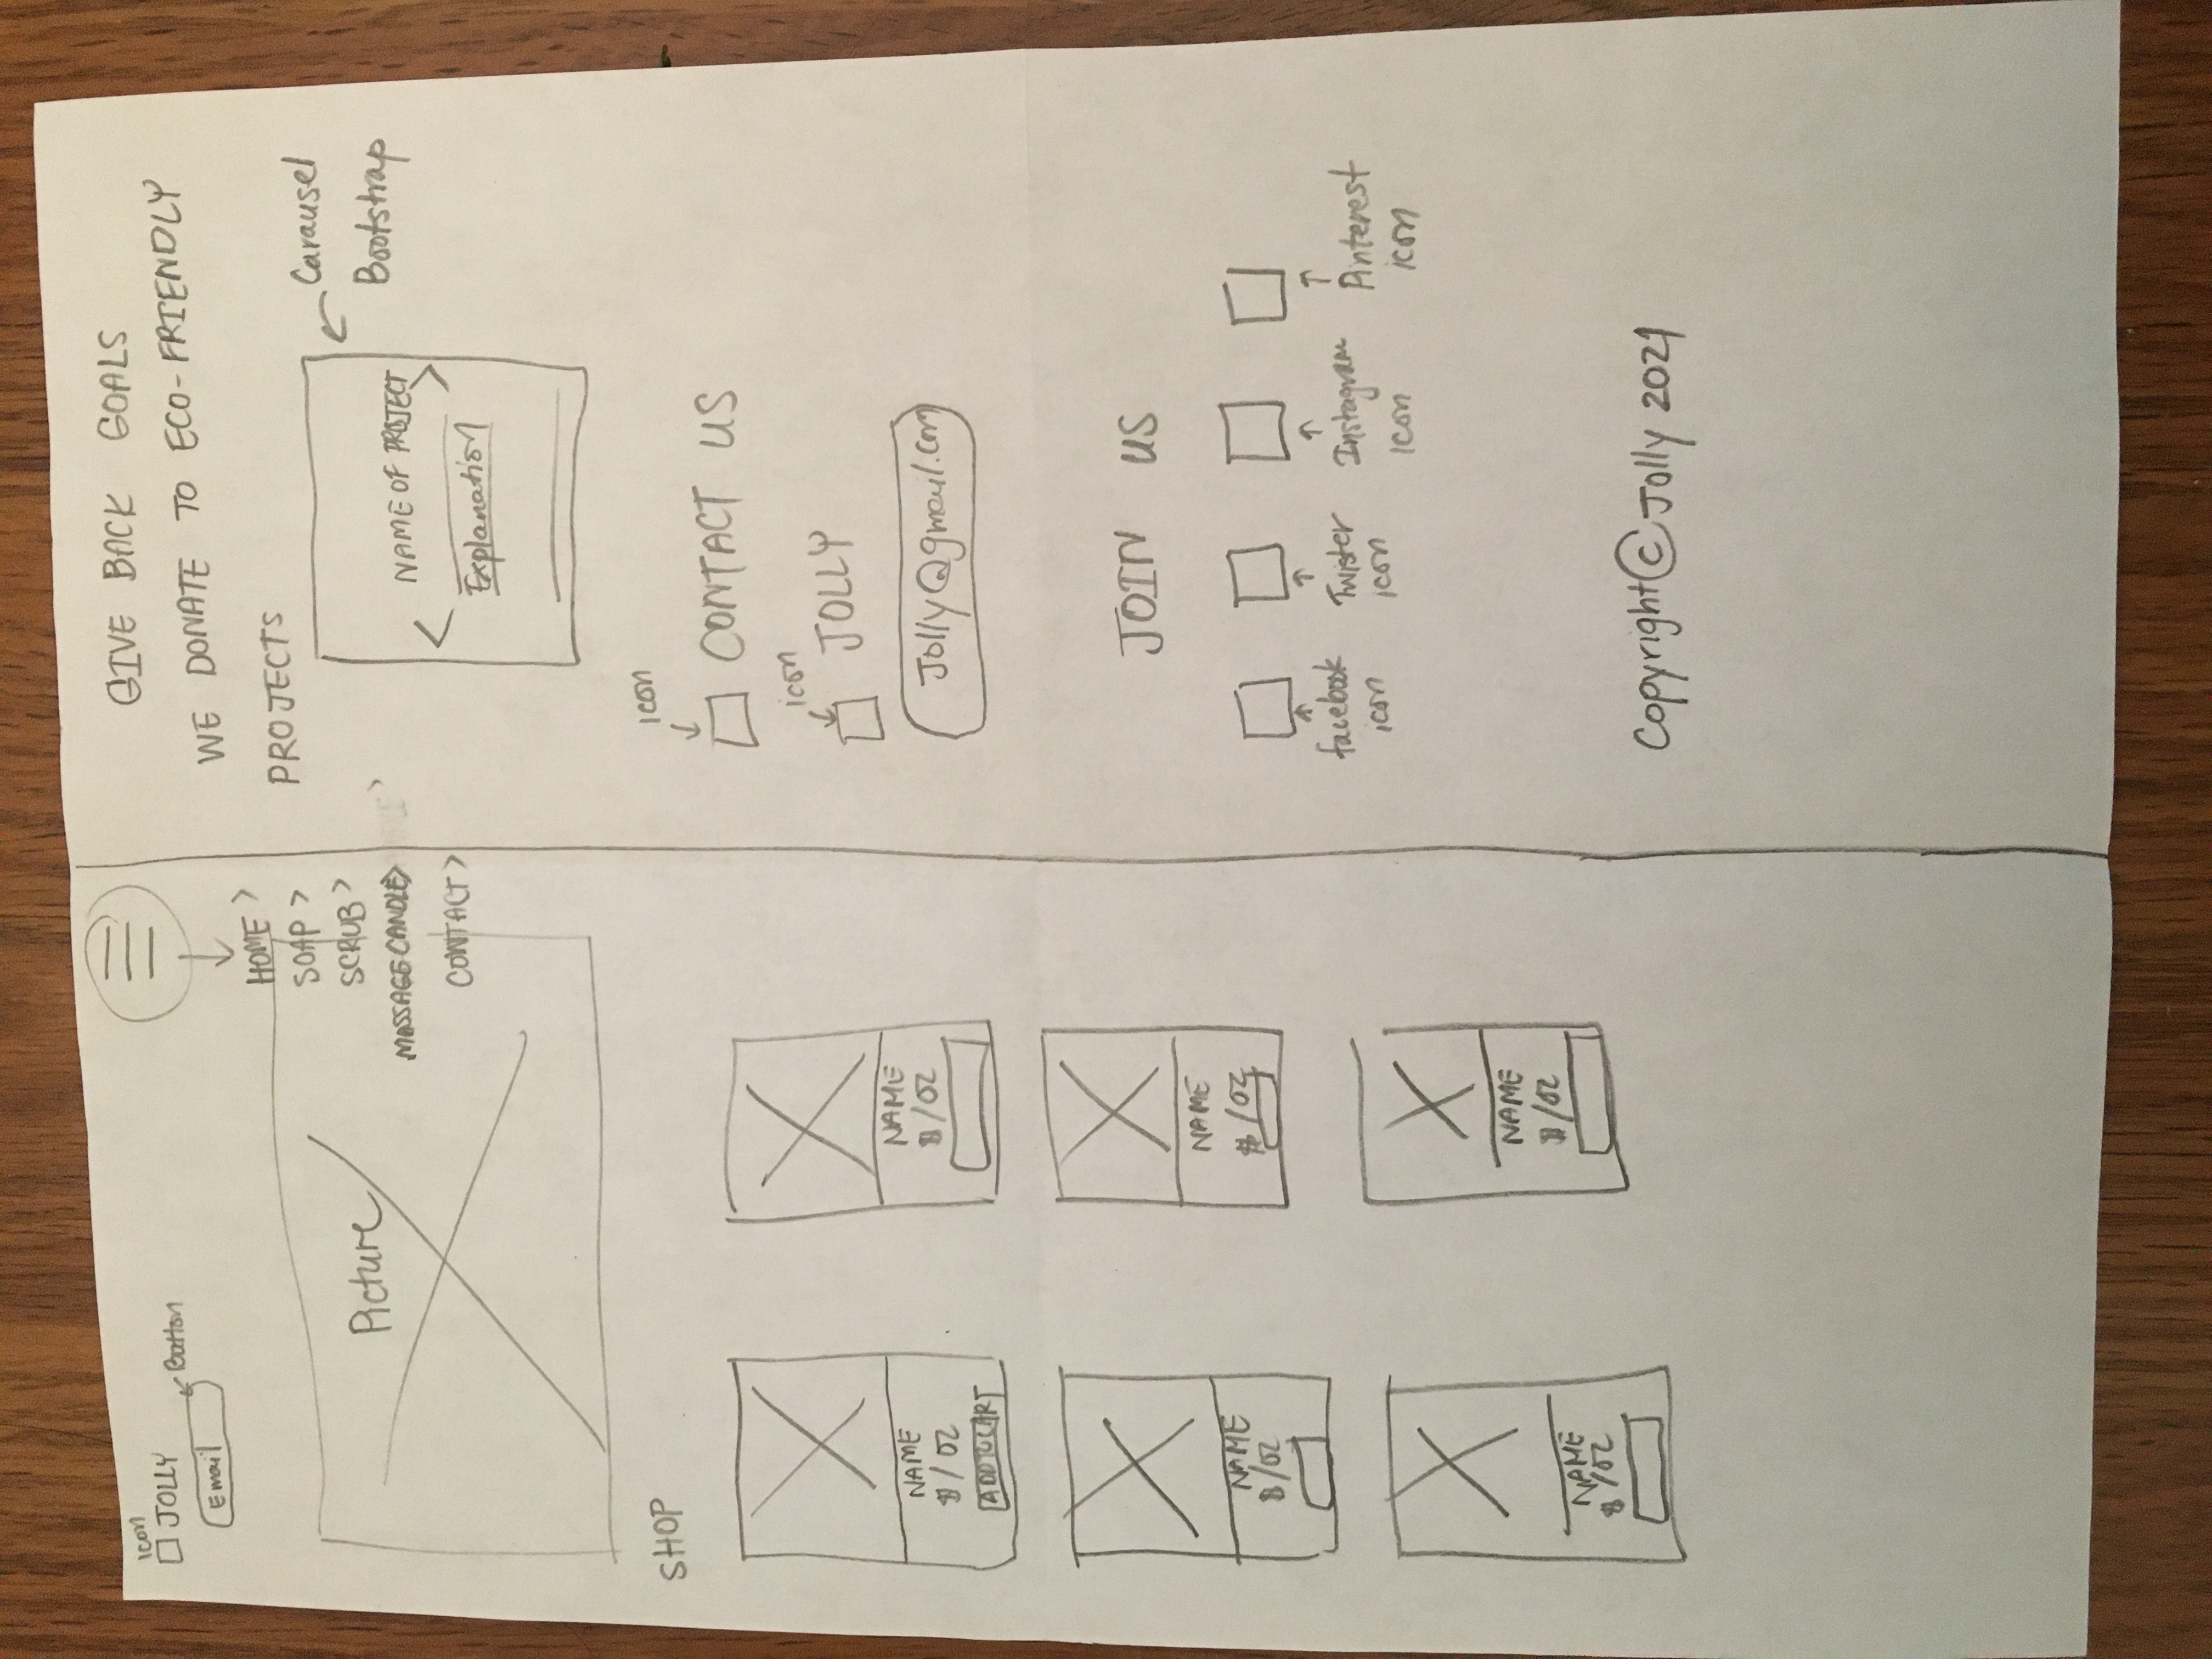 icon
JOLLY
Button
Email
HOME >
SOAP >
SCRUB >
MASSAGE CANDLE>
CONTACT >
Picture
SHOP
NAME
$/OZ
ADD TO CART
NAME
$/OZ
NAME
$/OZ
NAME
$/OZ
NAME
$/OZ
NAME
$/OZ
GIVE BACK GOALS
WE DONATE TO ECO-FRIENDLY
PROJECTS
Carausel
Bootstrap
NAME OF PROJECT
< >
Explanation
icon
CONTACT US
icon
JOLLY
Jolly@gmail.com
JOIN US
facebook
icon
Twister
icon
Instagram
icon
Pinterest
icon
Copyright © Jolly 2021